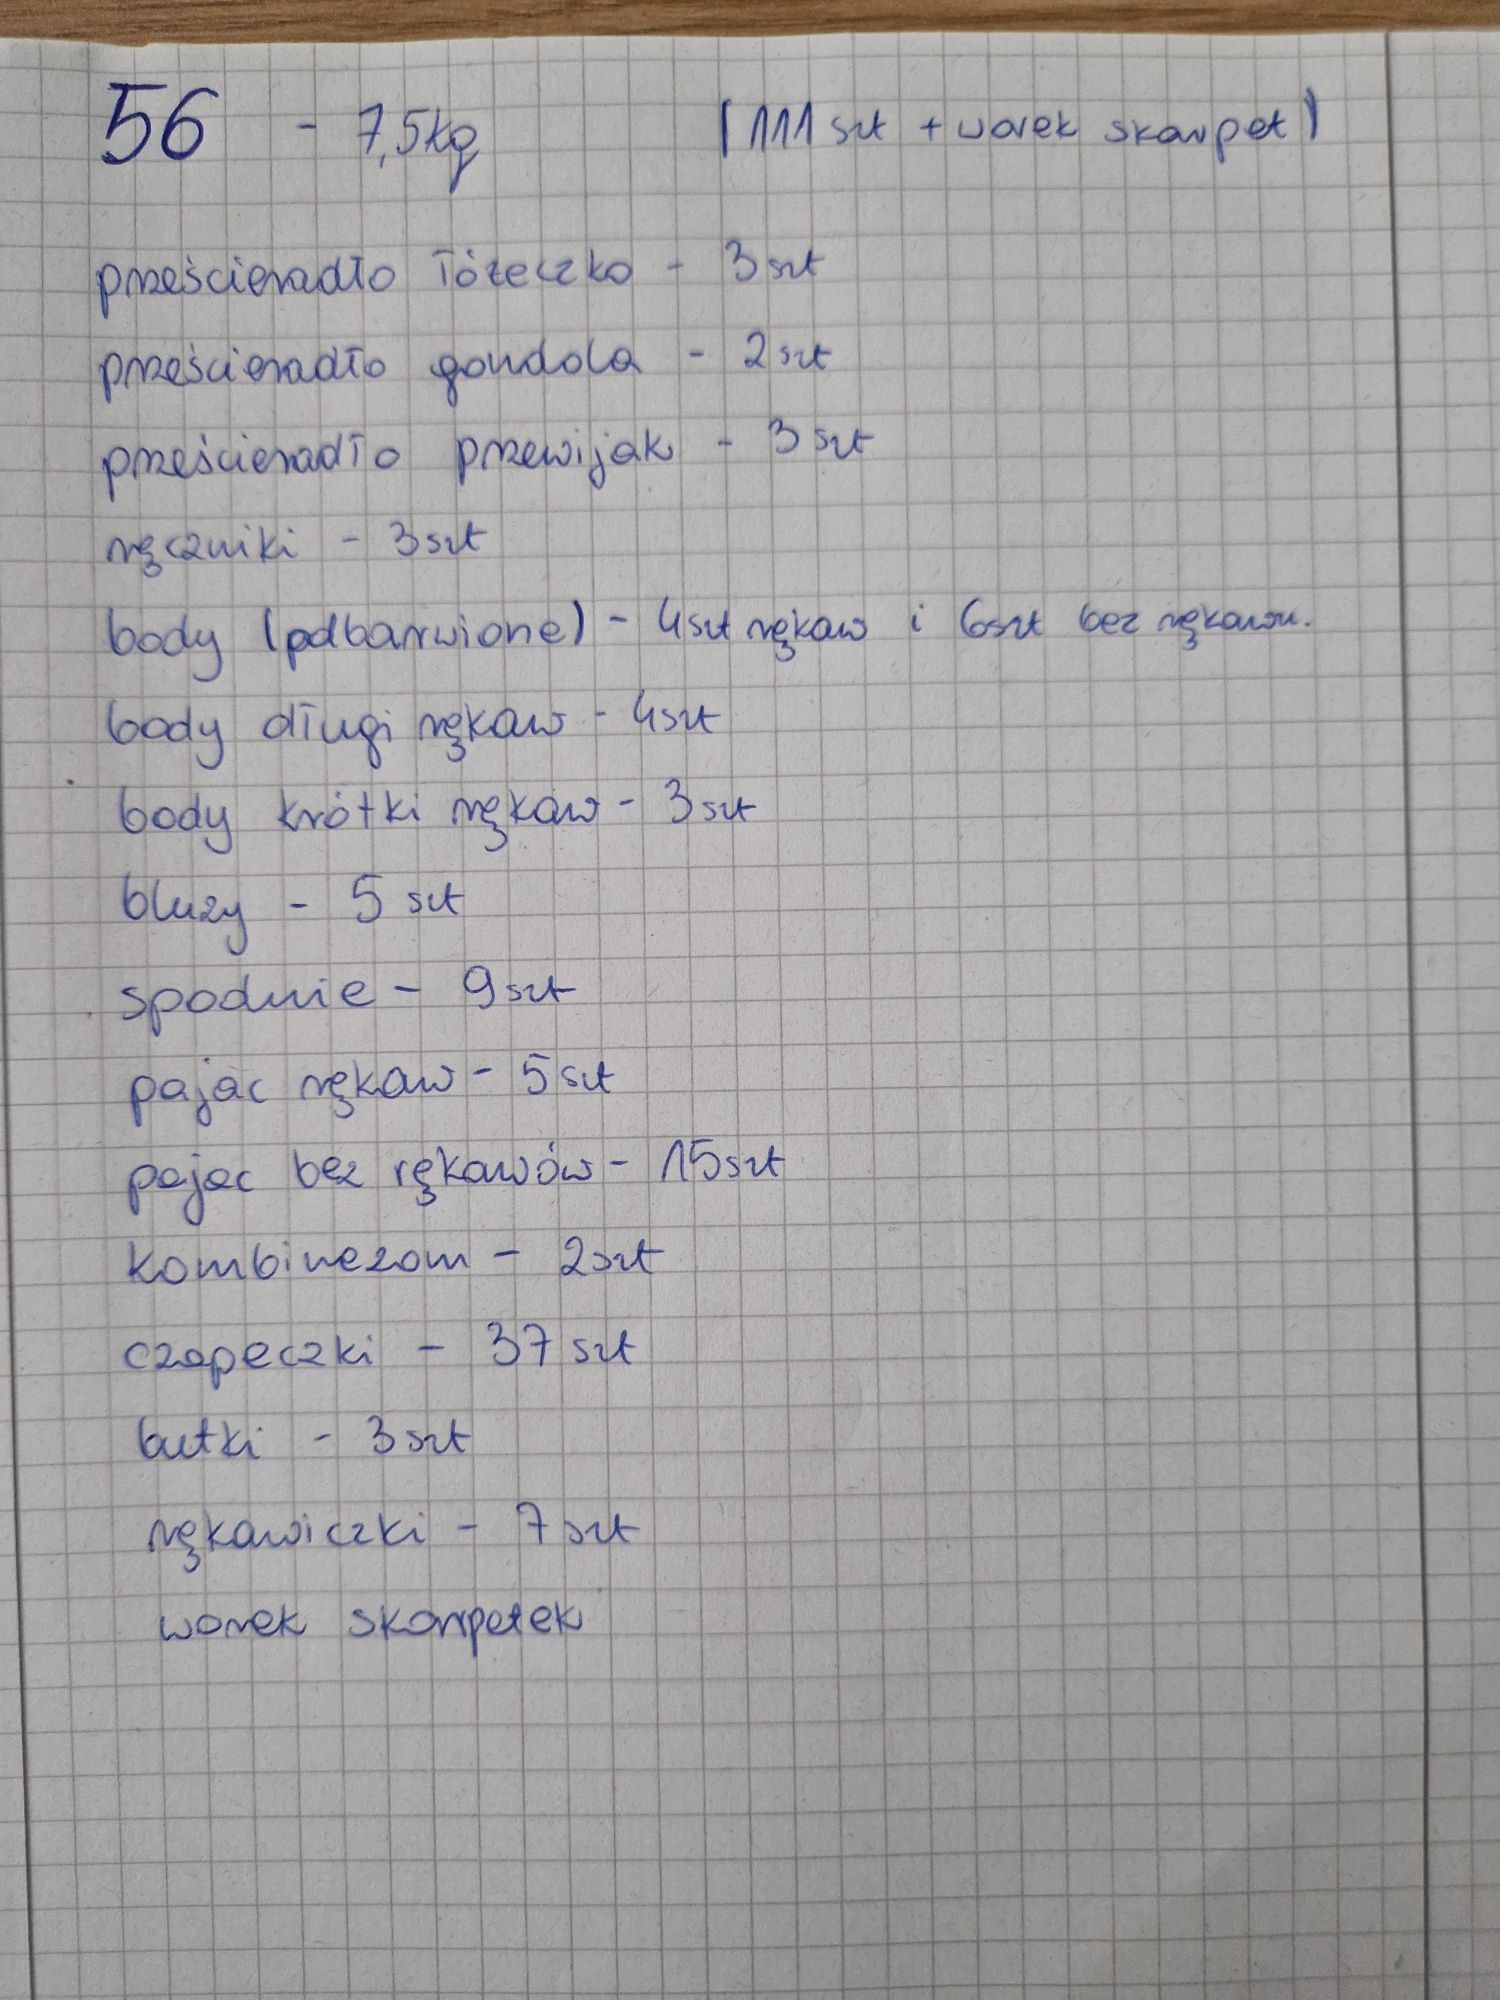 56 - 7,5kg (111 szt + worek skarpet)
prześcieradło łóżeczko - 3 szt
prześcieradło gondola - 2 szt
prześcieradło przewijak - 3 szt
ręczniki - 3 szt
body (odbarwione) - 4 szt rękaw i 6 szt bez rękawu.
body długi rękaw - 4 szt
body krótki rękaw - 3 szt
bluzy - 5 szt
spodnie - 9 szt
pajac rękaw - 5 szt
pajac bez rękawów - 15 szt
kombinezom - 2 szt
czapeczki - 37 szt
butki - 3 szt
rękawiczki - 7 szt
worek skarpetek